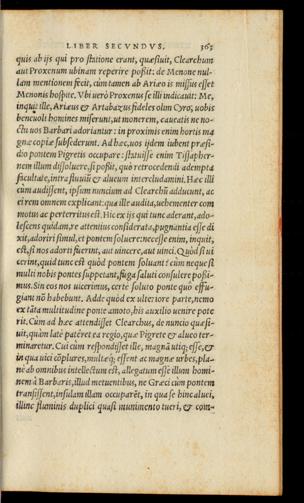 LIBER SECVNDVS. 363
quis ab ijs qui pro statione erant, quæsiuit, Clearchum
aut Proxenum ubinam reperire possit: de Menone nul-
lam mentionem fecit, cùm tamen ab Ariæo is missus esset
Menonis hospite. Vbi uerò Proxenus se illi indicauit: Me,
inquit ille, Ariæus & Artabazus fideles olim Cyro, uobis
beneuoli homines miserunt, ut monerem, caueatis ne no-
ctu uos Barbari adoriantur: in proximis enim hortis ma
gnæ copiæ subsederunt. Ad hæc, uos ijdem iubent præsi-
dio pontem Pigretis occupare: statuisse enim Tissapher-
nem illum dissoluere, si possit, quò retrocedendi adempta
facultate, intra fluuiũ & alueum intercludamini. Hæc illi
cùm audissent, ipsum nuncium ad Clearchũ adducunt, ac
ei rem omnem explicant: qua ille audita, uehementer com
motus ac perterritus est. Hic ex ijs qui tunc aderant, ado-
lescens quidam, re attentius considerata, pugnantia esse di
xit, adoriri simul, et pontem soluere: necesse enim, inquit,
est, si nos adorti fuerint, aut uincere, aut uinci. Quòd si ui
cerint, quid tunc est quòd pontem soluant? cùm neque si
multi nobis pontes suppetant, fuga saluti consulere possi-
mus. Sin eos nos uicerimus, certè soluto ponte quò effu-
giant nõ habebunt. Adde quòd ex ulteriore parte, nemo
ex tãta multitudine ponte amoto, his auxilio uenire pote
rit. Cùm ad hæc attendisset Clearchus, de nuncio quæsi-
uit, quàm latè patêret ea regio, quæ Pigrete & alueo ter-
minaretur. Cui cùm respondisset ille, magnã utiq; esse, &
in qua uici cõplures, multæq; essent ac magnæ urbes, pla-
nè ab omnibus intellectum est, allegatum esse illum homi-
nem à Barbaris, illud metuentibus, ne Græci cùm pontem
transissent, insulam illam occuparẽt, in qua se hinc aluei,
illinc fluminis duplici quasi munimento tueri, & com-